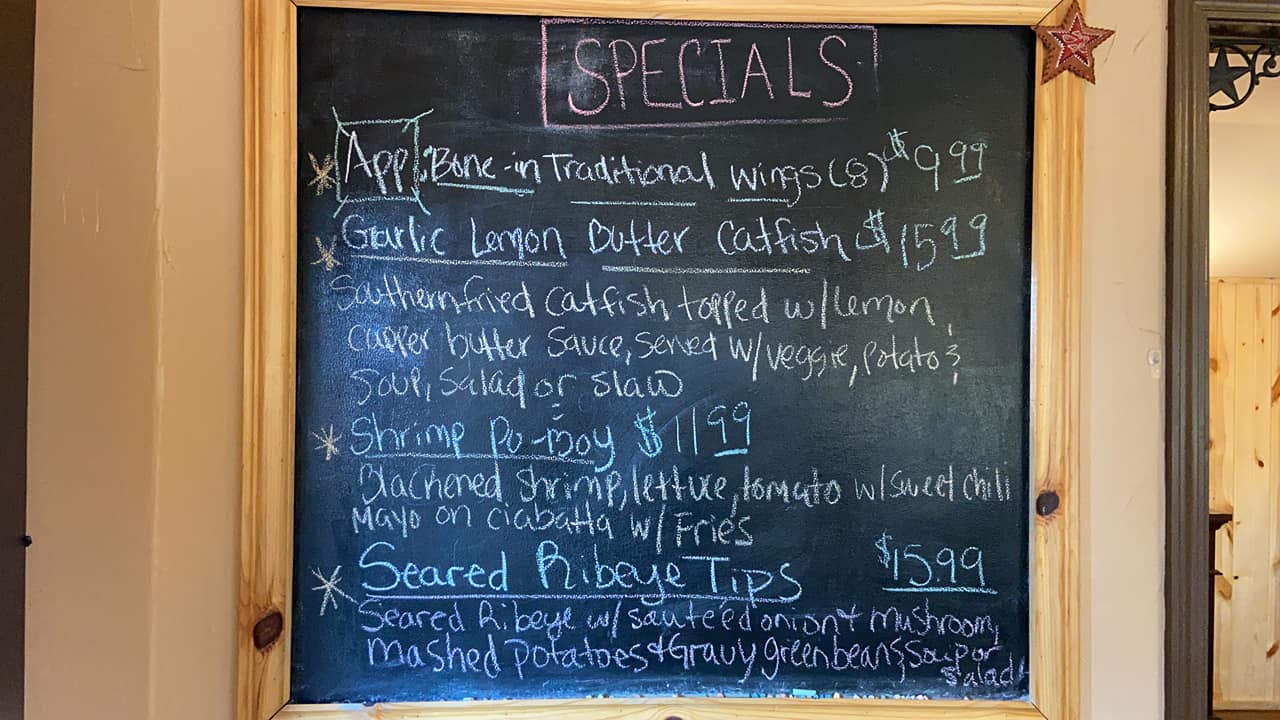 SPECIALS
App: Bone-in Traditional Wings (8) $9.99
Garlic Lemon Butter Catfish $15.99
Southern fried catfish topped w/lemon,
capper butter sauce, served w/veggie, potato &
soup, salad or slaw
Shrimp Po-Boy $11.99
Blackened Shrimp, lettuce, tomato w/sweet chili
Mayo on ciabatta w/ Fries
Seared Ribeye Tips $15.99
Seared Ribeye w/ sauteed onion + mushroom,
mashed potatoes & Gravy green beans & soup or
salad!